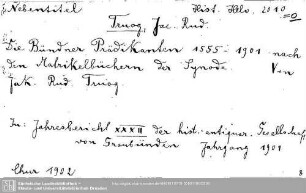 Nebentitel Hist. Helv. 2010
Truog, Jac. Rud.
Die Bündner Prädikanten 1555-1901 nach
den Matrikelbüchern der Synode. Von
Jak. Rud. Truog.
In: Jahresbericht XXXII der hist.-antiquar. Gesellschaft
von Graubünden Jahrgang 1901
Chur 1902
Sächsische Landesbibliothek -
Staats- und Universitätsbibliothek Dresden